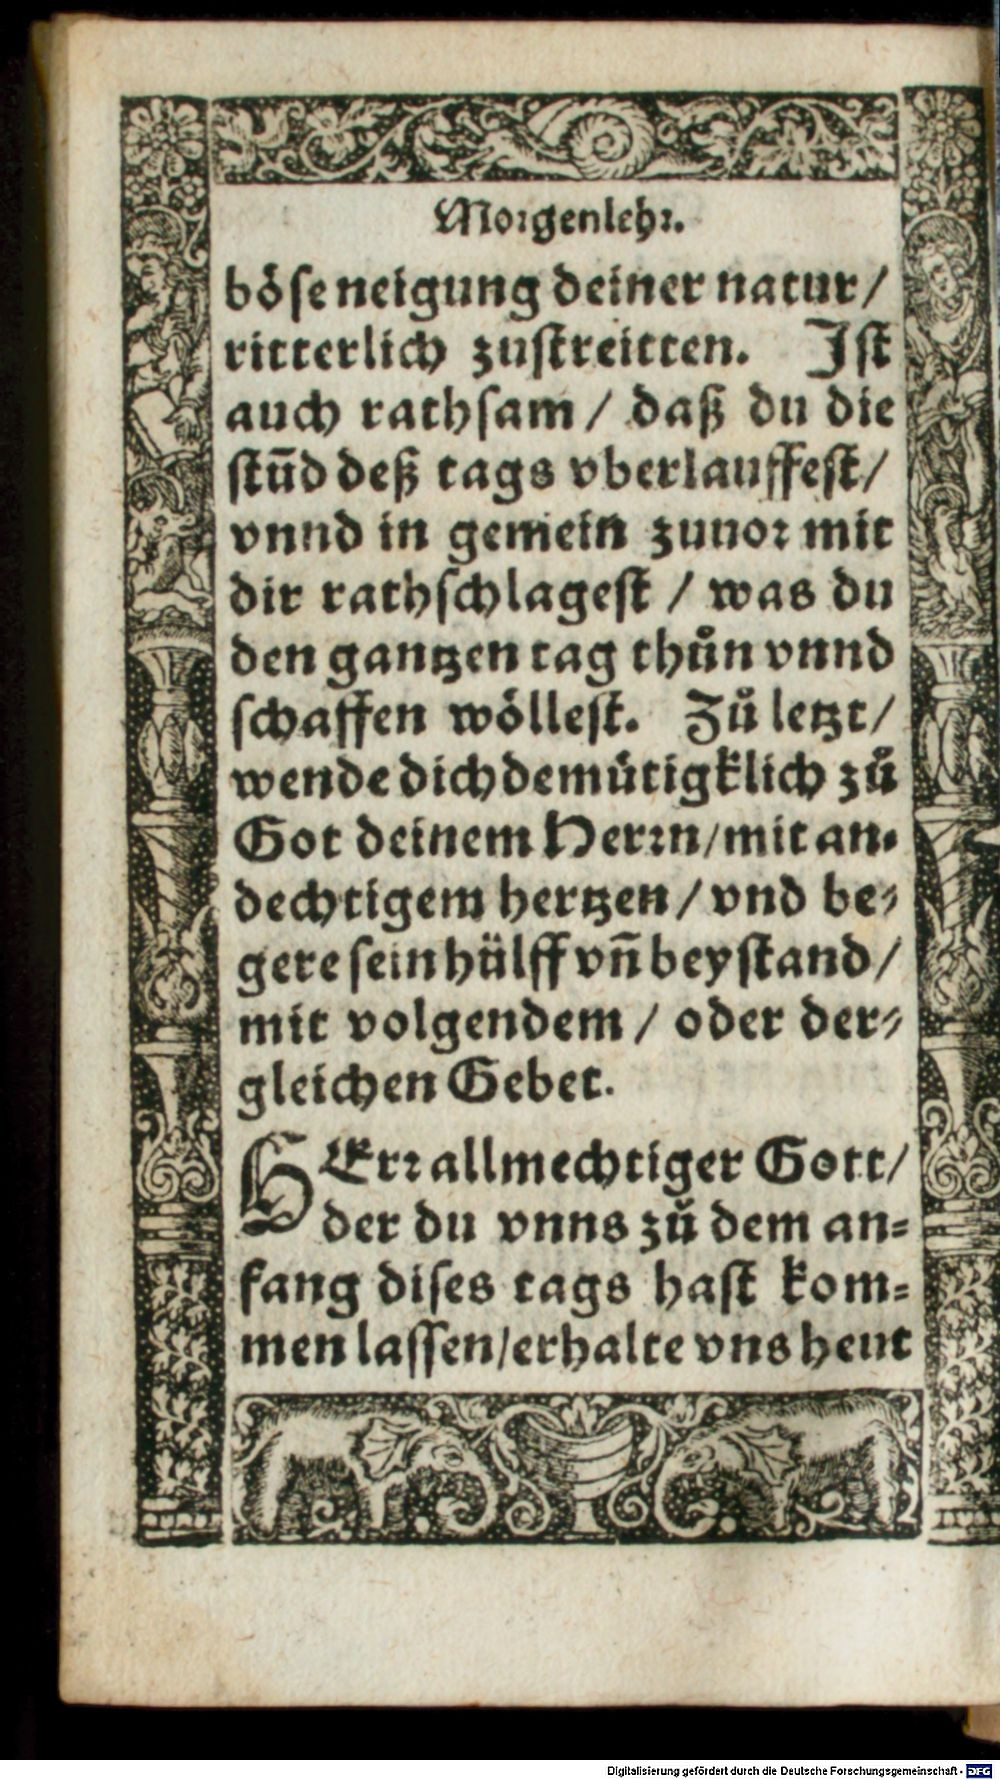 Morgenlehr.
böse neigung deiner natur /
ritterlich zustreitten. Ist
auch rathsam / daß du die
stūd deß tags vberlauffest /
vnnd in gemein zuuor mit
dir rathschlagest / was du
den gantzen tag thůn vnnd
schaffen wöllest. Zů letzt /
wende dich demütigklich zů
Got deinem Herrn / mit an-
dechtigem hertzen / vnd be-
gere sein hülff vñ beystand /
mit volgendem / oder der-
gleichen Gebet.
HErr allmechtiger Gott /
der du vnns zů dem an-
fang dises tags hast kom-
men lassen / erhalte vns heut
Digitalisierung gefördert durch die Deutsche Forschungsgemeinschaft - DFG